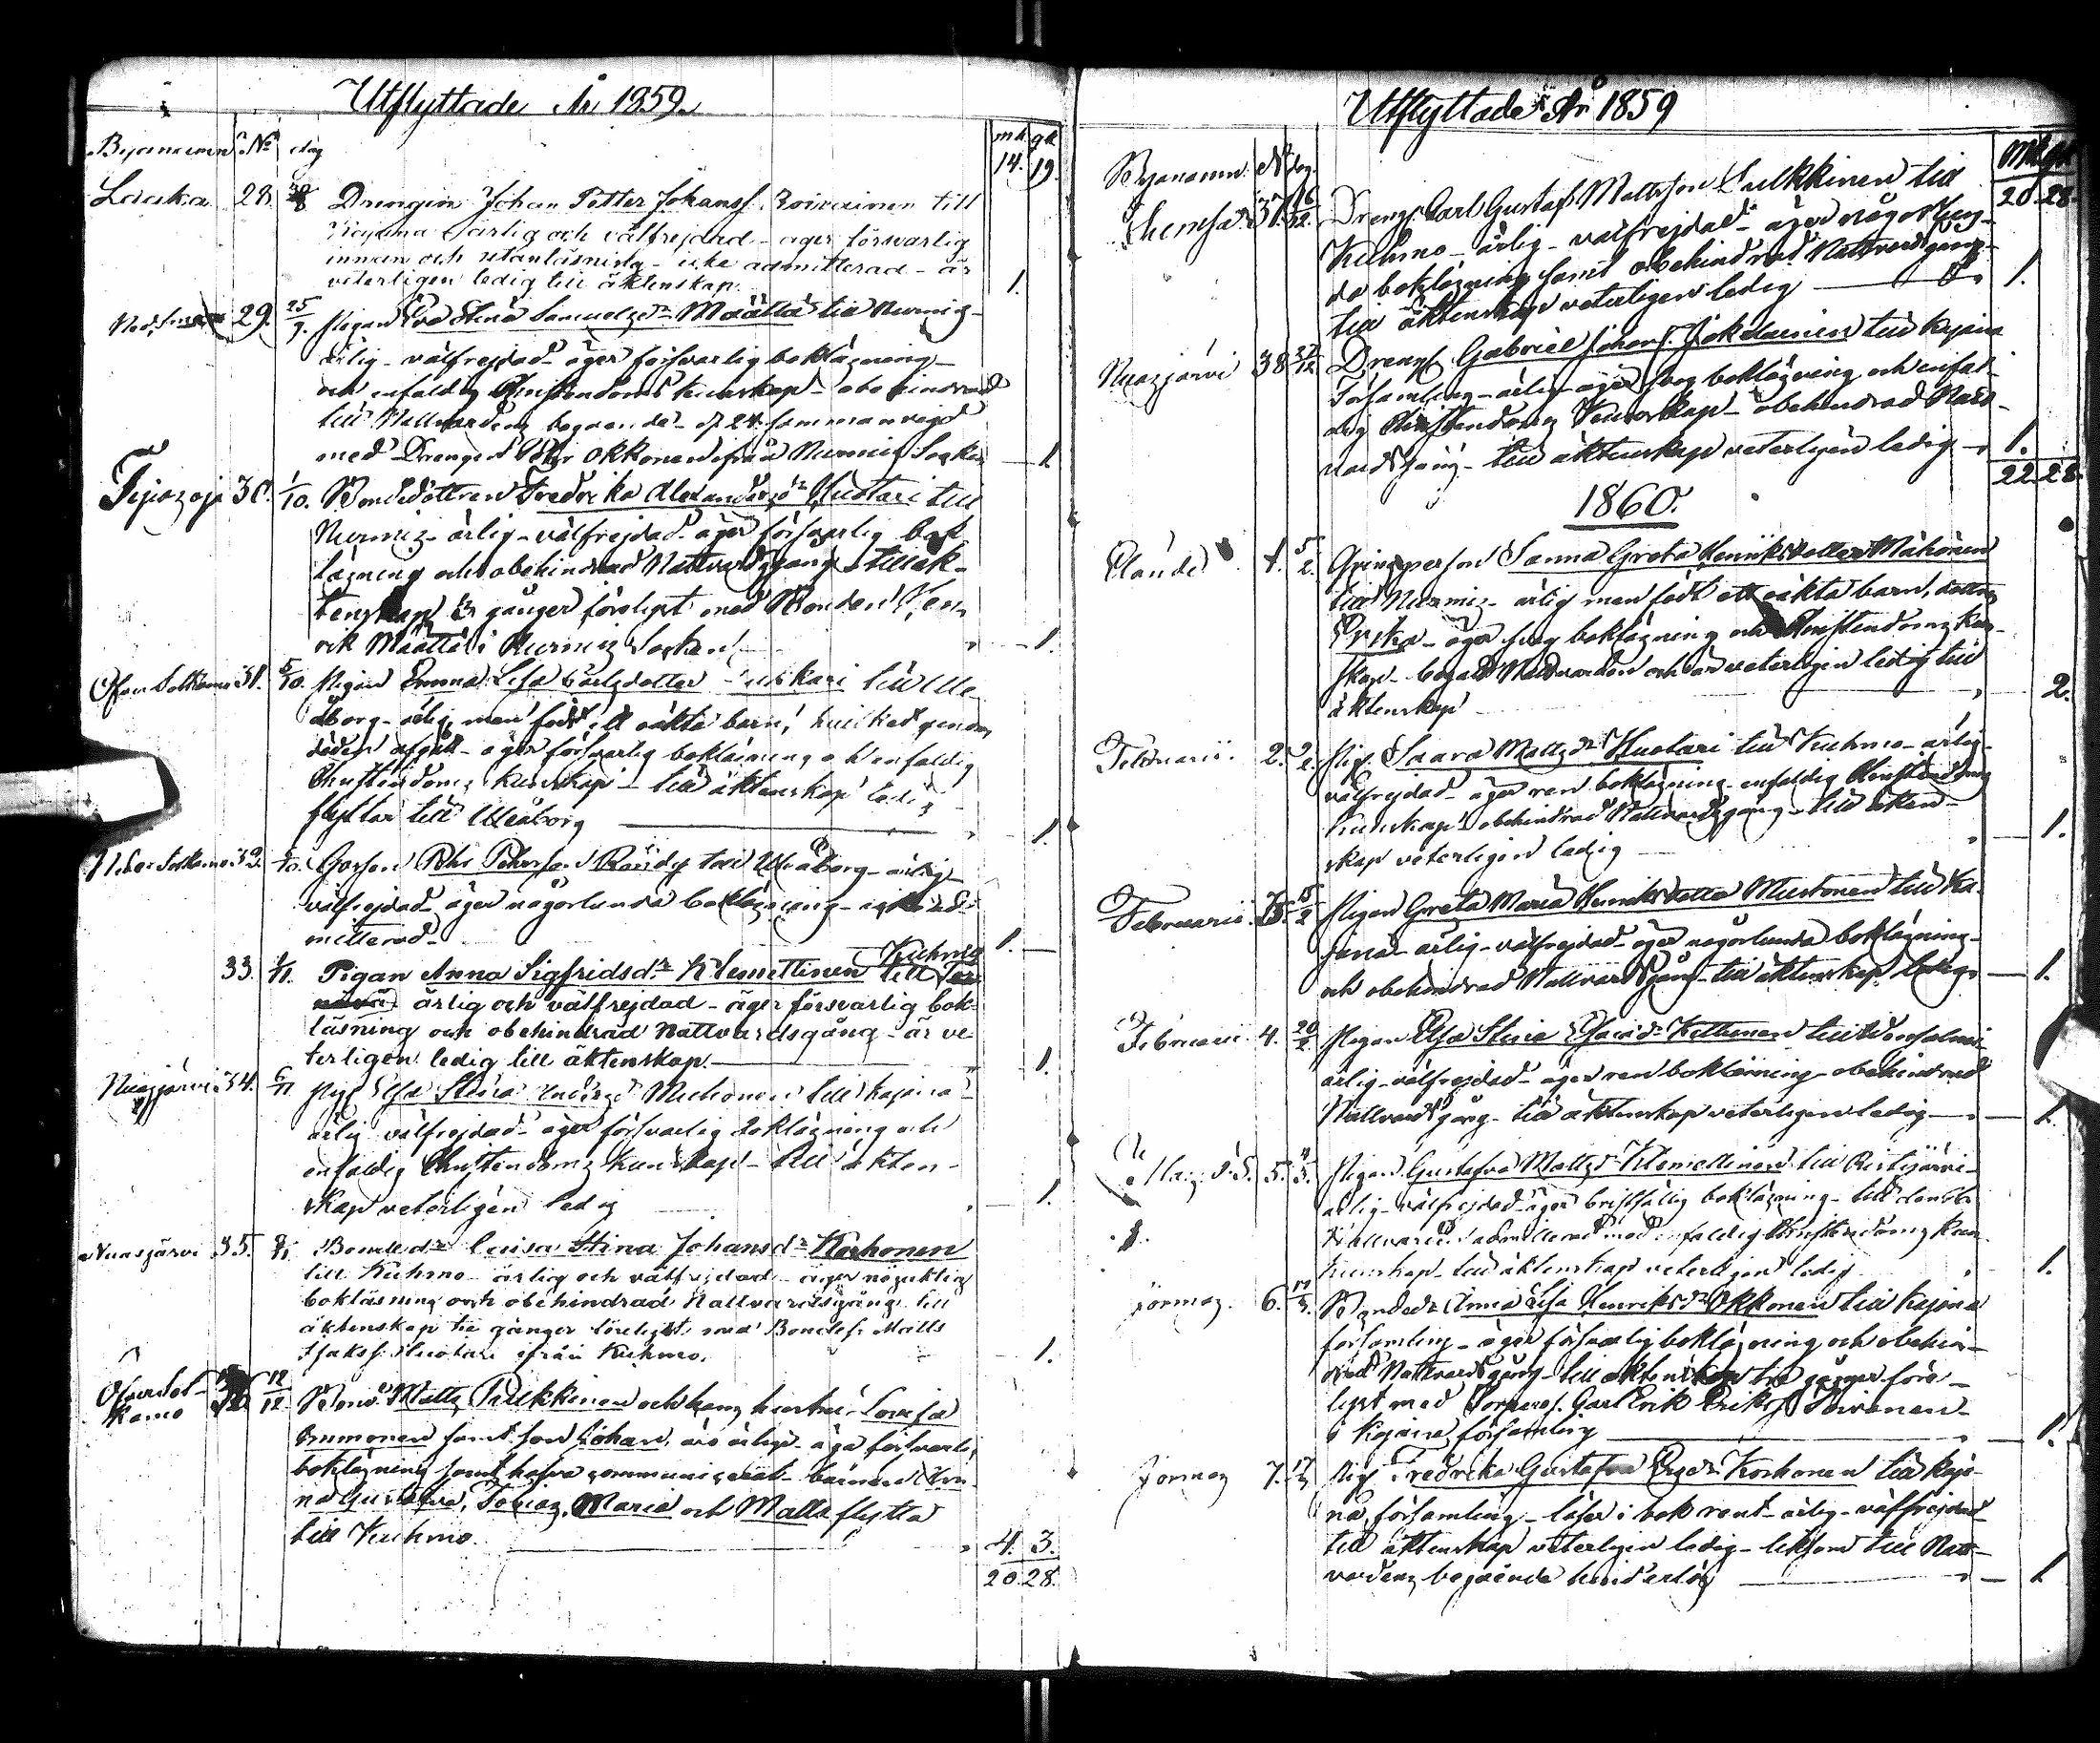 Utflyttade År 1859.
Byanamn No dag mk qk
14. 19.
Laaka 28. Drengen Johan Petter Johanss. till
Kajana ärlig och välfrejdad - äger försvarlig
innan och utanläsning - icke admitterad - är
veterligen ledig till äktenskap. 1.
29. 25/9. Pigan Eva Stina Samuelsdr Määttä till Nurmis -
ärlig - välfrejdad - äger försvarlig bokläsning -
och enfaldig Christendoms kunskap - obehindrad
till Nattvardens begående - sammanvigd
med Drengen Petter Okkonen ifrån Nurmis Socken 1.
Tipasoja 30. 1/10. Bondedottren Fredrika Alexandersdr Huotari till
Nurmis - ärlig - välfrejdad - äger försvarlig bok-
läsning och obehindrad Nattvardsgång - till äk-
tenskap 3 gånger förelyst med Bonden Hen-
rik Määttä i Nurmis Socken 1.
Öfver Sotkamo 31. 5/10. Pigan Emma Lisa Carlsdotter till Ule-
åborg - ärlig men födt ett oäkta barn, hvilket genom
döden afgått - äger försvarlig bokläsning och enfaldig
Christendoms kunskap - till äktenskap ledig -
flyttar till Uleåborg 1.
Neder Sotkamo 32. Gossen Petter Petersson Randy till Uleåborg - ärlig -
välfrejdad - äger någorlunda bokläsning - icke ad-
mitterad - 1.
33. Pigan Anna Sigfridsdr Klemettinen till Kuhmo
ärlig och välfrejdad - äger försvarlig bok-
läsning och obehindrad Nattvardsgång - är ve-
terligen ledig till äktenskap. 1.
Nuasjärvi 34. 6/11 Pig. Elsa Stina Mikkonen till Kajana -
ärlig välfrejdad - äger försvarlig bokläsning och
enfaldig Christendoms kunskap - till äkten-
skap veterligen ledig 1.
Nuasjärvi 35. Bondedr Lovisa Stina Johansdr Korhonen
till Kuhmo - ärlig och välfrejdad - äger nöjaktig
bokläsning och obehindrad Nattvardsgång till
äktenskap tre gånger förelyst med Bondes. Matts
Huotari ifrån Kuhmo. 1.
Öfversot-
kamo 12/12 Bond. Matts Pulkkinen och hans hustru Lovisa
Immonen samt son Johan, äro ärliga - äga försvarlig
bokläsning samt hafva communicerat - barnen An-
na Gustafva, Tobias, Maria och Matts flytta
till Kuhmo. 4. 3.
20. 28.
Utflyttade År 1859
Byanamn. No dag. Mk qk
20. 28.
37. 16/12. Drengs. Carl Gustaf Mattsson Pulkkinen till
Kuhmo - ärlig - välfrejdad - äger någorlun-
da bokläsning samt obehindrad Nattvardsgång -
till äktenskap veterligen ledig 1.
Nuasjärvi 38 Drengs. Gabriel Johans. Jokelainen till Kajana
Församling - ärlig - äger svag bokläsning och enfal-
dig Christendoms kunskap - obehindrad Natt-
vardsgång - till äktenskap veterligen ledig 1.
22. 28.
1860.
1. 5/2. Qvinsperson Sanna Greta Henriksdotter Mähönen
till Nurmis - ärlig men födt ett oäkta barn, dottren
- äger svag bokläsning och Christendoms kun-
skap - begått Nattvarden och är veterligen ledig till
äktenskap 2.
Februarii. 2. Pig. Saara Mattsdr Huotari till Kuhmo - ärlig -
välfrejdad - äger ren bokläsning - enfaldig Christendoms
kunskap - obehindrad Nattvardsgång - till äkten-
skap veterligen ledig 1.
Februarii. 3. 15/2 Pigan Greta Maria Henriksdotter Mustonen till Ka-
jana - ärlig - välfrejdad - äger någorlunda bokläsning -
och obehindrad Nattvardsgång - till äktenskap ledig 1.
Februarii 4. 20/2. Pigan Elsa Stina Kettunen till Idensalmi -
ärlig - välfrejdad - äger ren bokläsning - obehindrad
Nattvardsgång - till äktenskap veterligen ledig 1.
5. Pigan Gustafva Mattsdr Klemettinen till Ristijärvi -
ärlig - välfrejdad - äger bristfällig bokläsning - till den H.
Nattvarden admitterad med enfaldig Christendoms kun-
kunskap - till äktenskap veterligen ledig 1.
Jormas. 6. Bondedr Anna Lisa Henriksdr Okkonen till Kajana
församling - äger försvarlig bokläsning och obehin-
drad Nattvardsgång - till äktenskap tre gånger före-
lyst med Torpares. Carl Erik Eriks. Toivanen
i Kajana församling 1.
Jormas 7. Pig. Fredrika Gustafva Korhonen till Kaja-
na församling - läser i bok rent - ärlig - välfrejdad
till äktenskap veterligen ledig - liksom till Natt-
vardens begående hinderlös 1